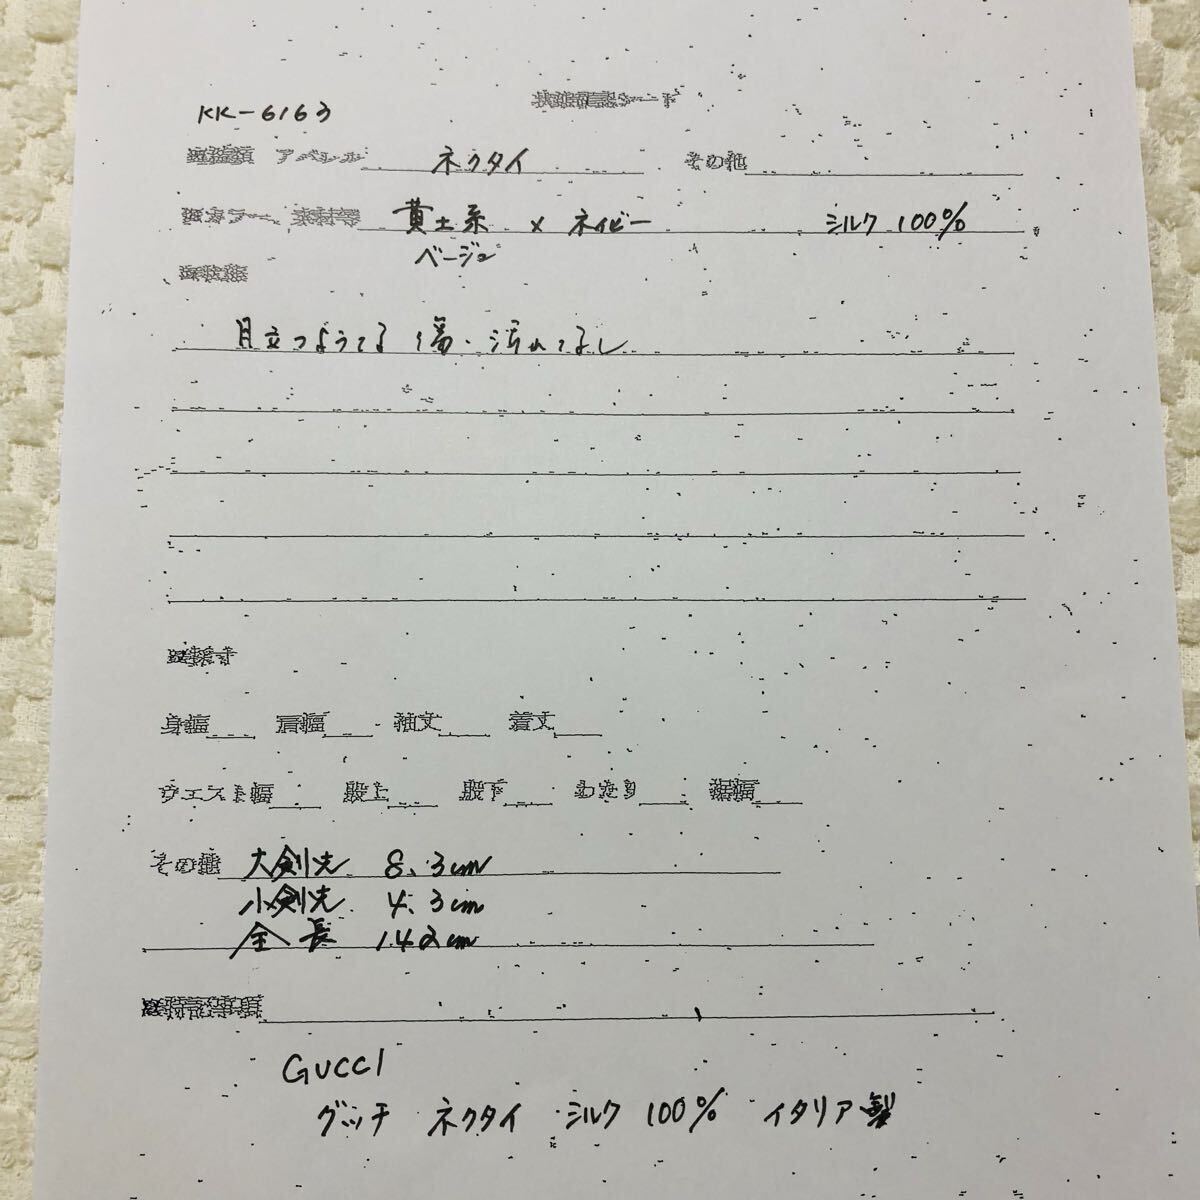 KK-6163
アパレル ネクタイ その他
カラー、素材等 黄土系 × ネイビー シルク 100%
ベージュ
目立つような傷・汚れなし
身幅 肩幅 袖丈 着丈
ウエスト幅 股上 股下 わたり 裾幅
その他 大剣先 8.3cm
小剣先 4.3cm
全長 142cm
特記事項
GUCCI
グッチ ネクタイ シルク 100% イタリア製